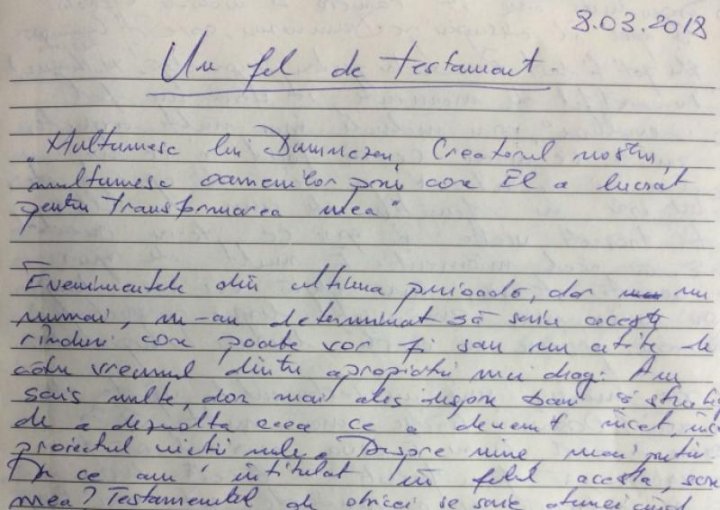 8.03.2018
Un fel de testament
"Multumesc lui Dumnezeu, Creatorul nostru,
multumesc oamenilor prin care El a lucrat
pentru transformarea mea"
Evenimentele din ultima perioada, dar nu
numai, m-au determinat să scriu aceste
rinduri care poate vor fi sau nu citite de
către vreunul dintre apropiatii mei dragi. Am
scris multe, dar mai ales despre
de a dezvolta ceea ce a devenit incet,
proiectul vietii mele. Despre mine, mai putin.
De ce am intitulat in felul acesta,
mea? Testamentul de obicei se scrie atunci cind